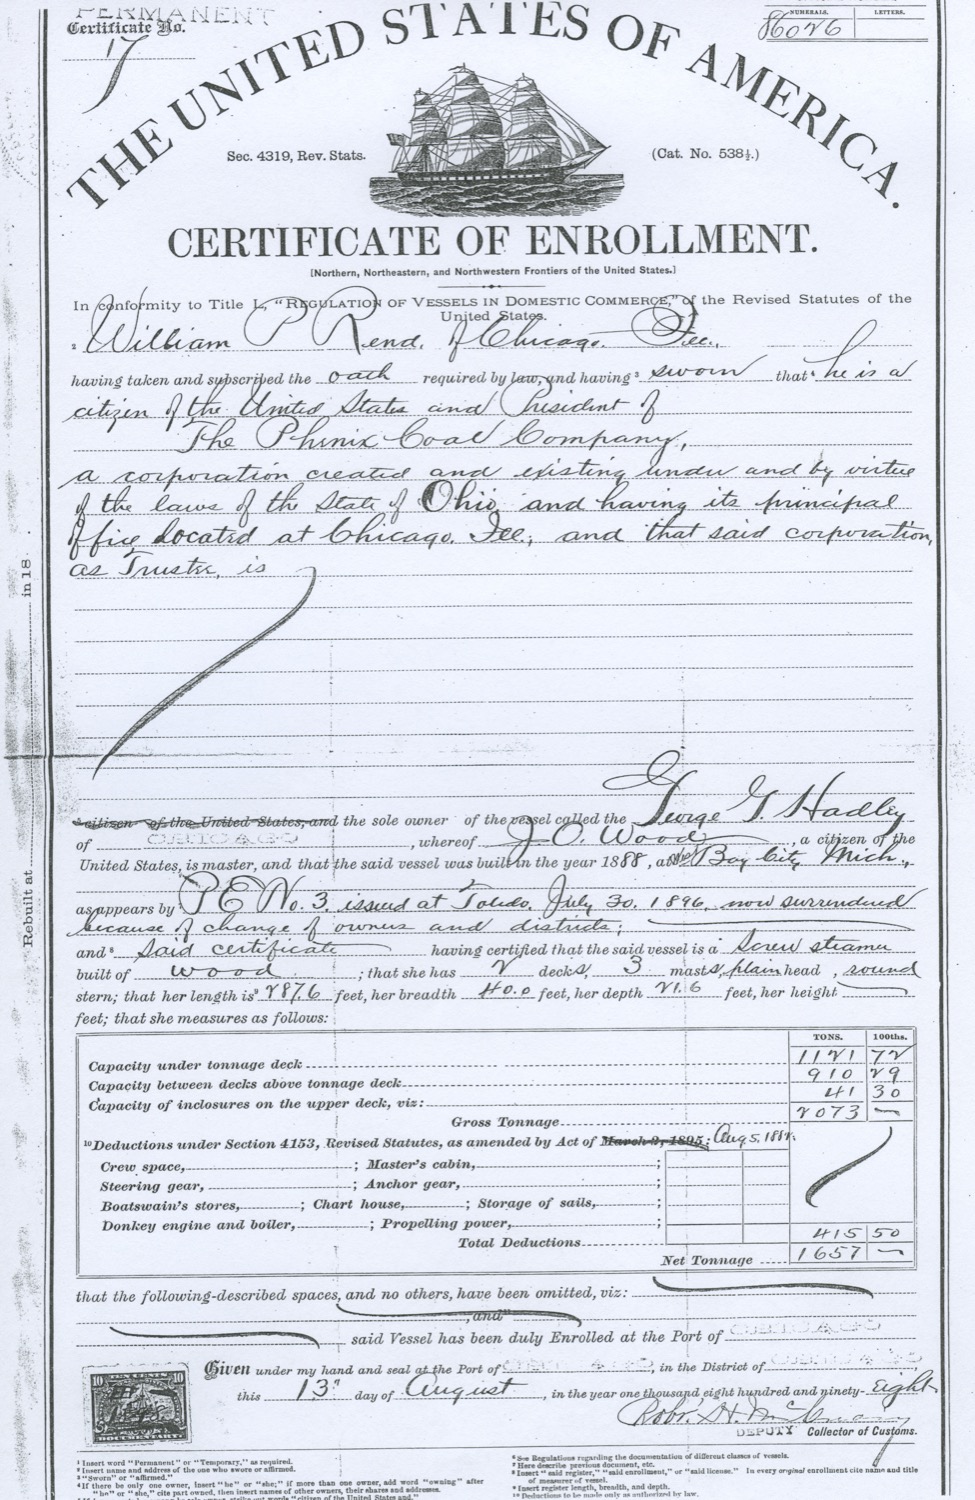 PERMANENT
Certificate No.
17
NUMERALS. LETTERS.
86026
THE UNITED STATES OF AMERICA.
Sec. 4319, Rev. Stats. (Cat. No. 538½.)
CERTIFICATE OF ENROLLMENT.
[Northern, Northeastern, and Northwestern Frontiers of the United States.]
In conformity to Title L, "REGULATION OF VESSELS IN DOMESTIC COMMERCE," of the Revised Statutes of the
United States.
² William P Rend, of Chicago. Ill.,
having taken and subscribed the oath required by law, and having ³ sworn that ⁴ he is a
citizen of the United States and President of
The Phenix Coal Company,
a corporation created and existing under and by virtue
of the laws of the State of Ohio and having its principal
office located at Chicago. Ill., and that said corporation,
as Trustee, is
citizen of the United States, and the sole owner of the vessel called the George G. Hadley
of CHICAGO, whereof J. O. Wood, a citizen of the
United States, is master, and that the said vessel was built in the year 1888, at West Bay City Mich.,
as appears by P E No. 3. issued at Toledo. July 30. 1896. now surrendered
because of change of owners and districts;
and ⁸ said certificate having certified that the said vessel is a Screw steamer
built of wood; that she has 2 decks, 3 masts, plain head, round
stern; that her length is ⁹ 287.6 feet, her breadth 40.0 feet, her depth 21.6 feet, her height
feet; that she measures as follows:
TONS. 100ths.
Capacity under tonnage deck 1121 72
Capacity between decks above tonnage deck 910 29
Capacity of inclosures on the upper deck, viz: 41 30
Gross Tonnage 2073 —
¹⁰ Deductions under Section 4153, Revised Statutes, as amended by Act of March 2, 1895: Aug 5, 1882.
Crew space, ; Master's cabin, ;
Steering gear, ; Anchor gear, ;
Boatswain's stores, ; Chart house, ; Storage of sails, ;
Donkey engine and boiler, ; Propelling power, ;
Total Deductions 415 50
Net Tonnage 1657 —
that the following-described spaces, and no others, have been omitted, viz:
, and
said Vessel has been duly Enrolled at the Port of CHICAGO
Given under my hand and seal at the Port of CHICAGO, in the District of CHICAGO,
this 13" day of August, in the year one thousand eight hundred and ninety-eight
DEPUTY Collector of Customs.
TEN CENTS
10 10
DOCUMENTARY
¹ Insert word "Permanent" or "Temporary," as required.
² Insert name and address of the one who swore or affirmed.
³ "Sworn" or "affirmed."
⁴ If there be only one owner, insert "he" or "she;" if more than one owner, add word "owning" after
"he" or "she," cite part owned, then insert names of other owners, their shares and addresses.
⁶ See Regulations regarding the documentation of different classes of vessels.
⁷ Here describe previous document, etc.
⁸ Insert "said register," "said enrollment," or "said license." In every original enrollment cite name and title
of measurer of vessel.
⁹ Insert register length, breadth, and depth.
¹⁰ Deductions to be made only as authorized by law.
Rebuilt at in 18 .